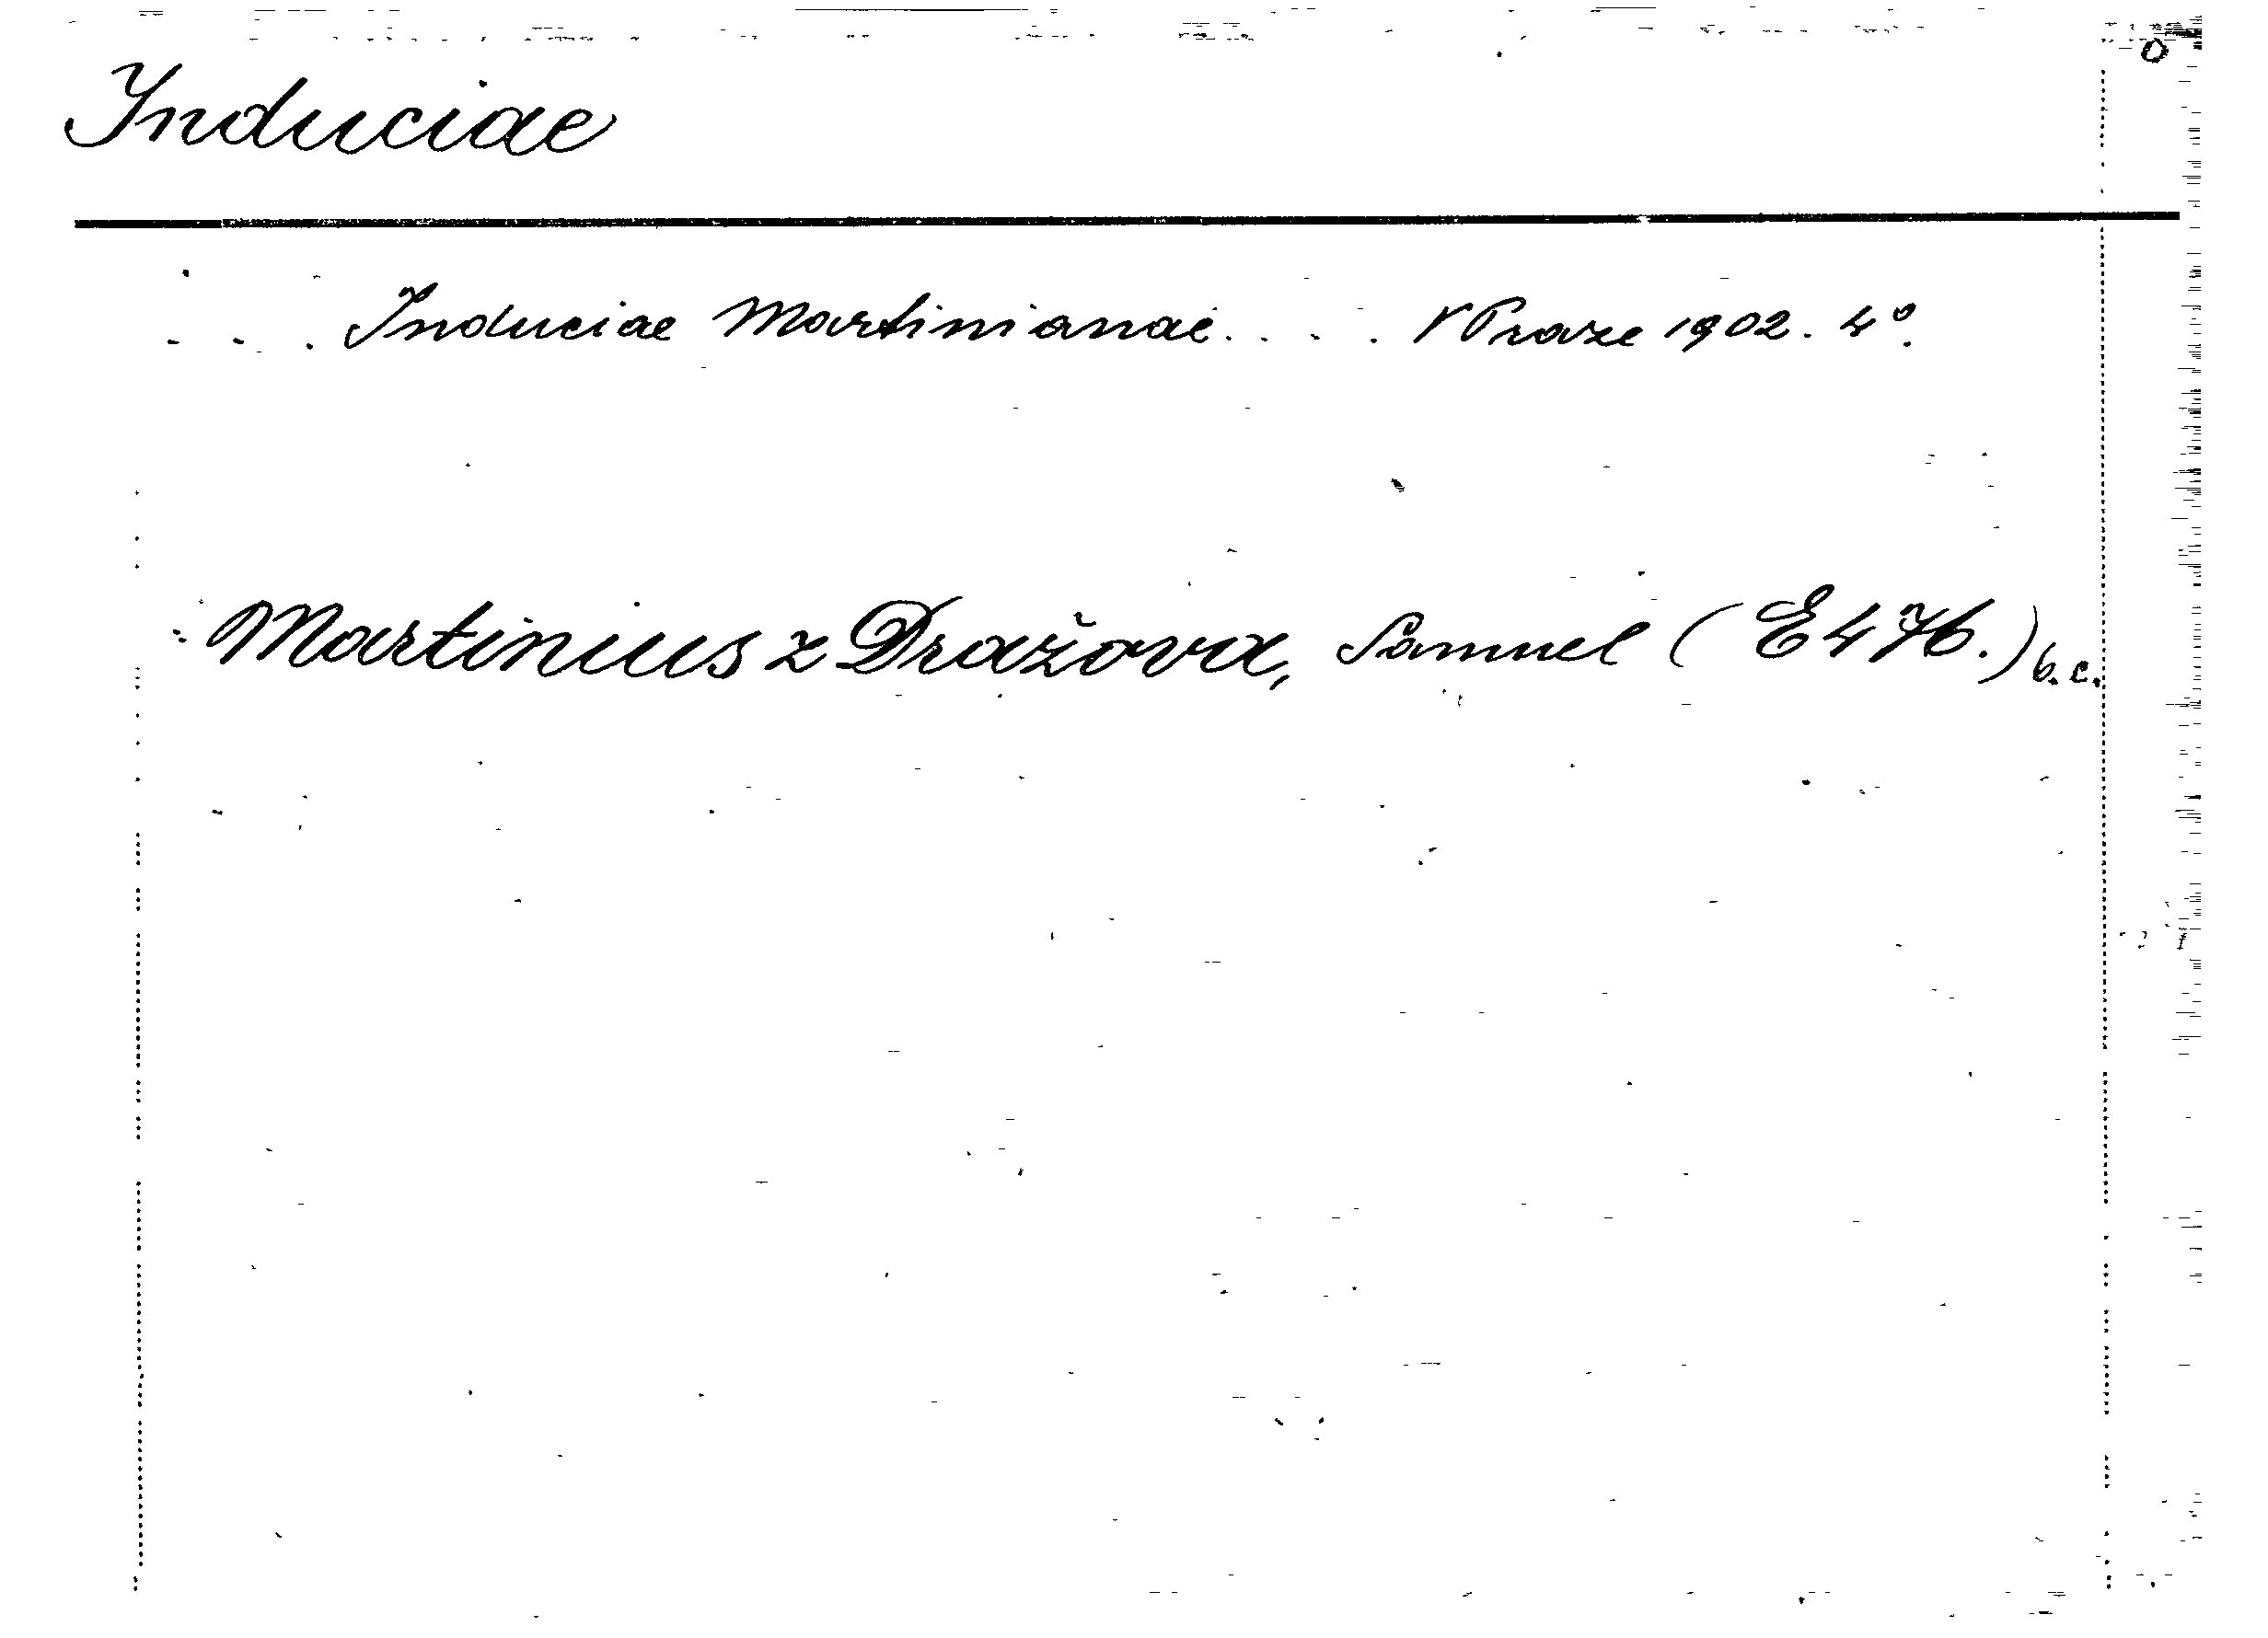 Induciae
. . . Induciae Martinianae. . . . V Praze 1902. 4°.
Martinius z Dražova, Samuel (E 476.) b. c.